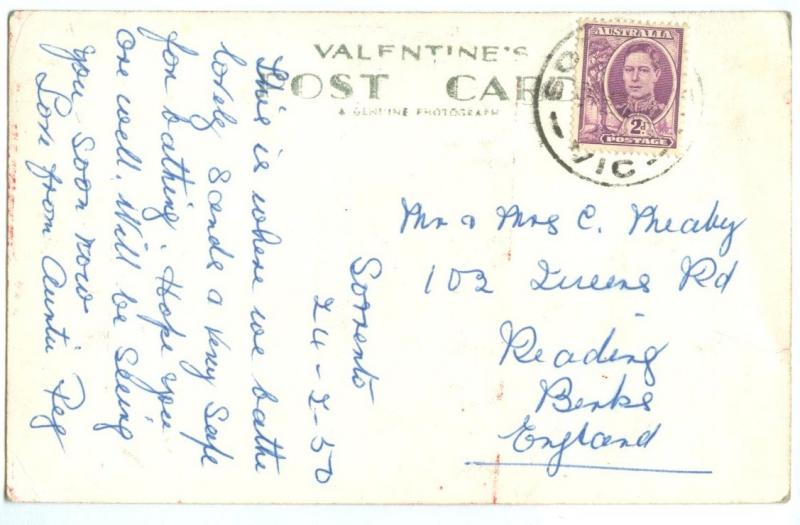 VALENTINE'S
POST CARD
A GENUINE PHOTOGRAPH
AUSTRALIA
2D
POSTAGE
SO
VIC
Sorrento
24-2-50
This is where we bathe
lovely sands & very safe
for bathing. Hope you
are well. Will be seeing
you soon now
Love from Auntie Peg
Mr & Mrs C. Meaby
102 Queens Rd
Reading
Berks
England